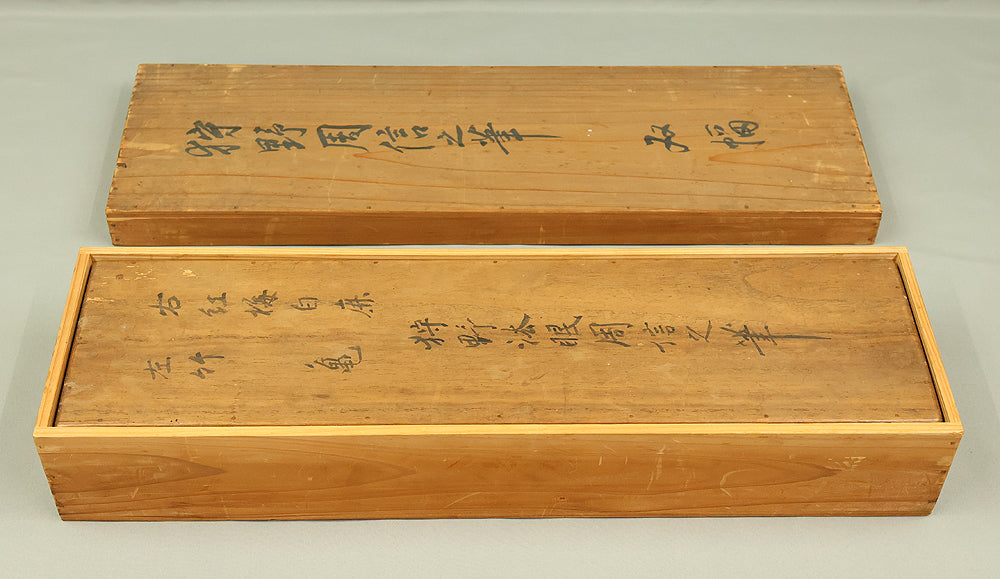 狩野周信之筆
双幅
右紅梅白鹿
左竹 亀
狩野法眼周信之筆